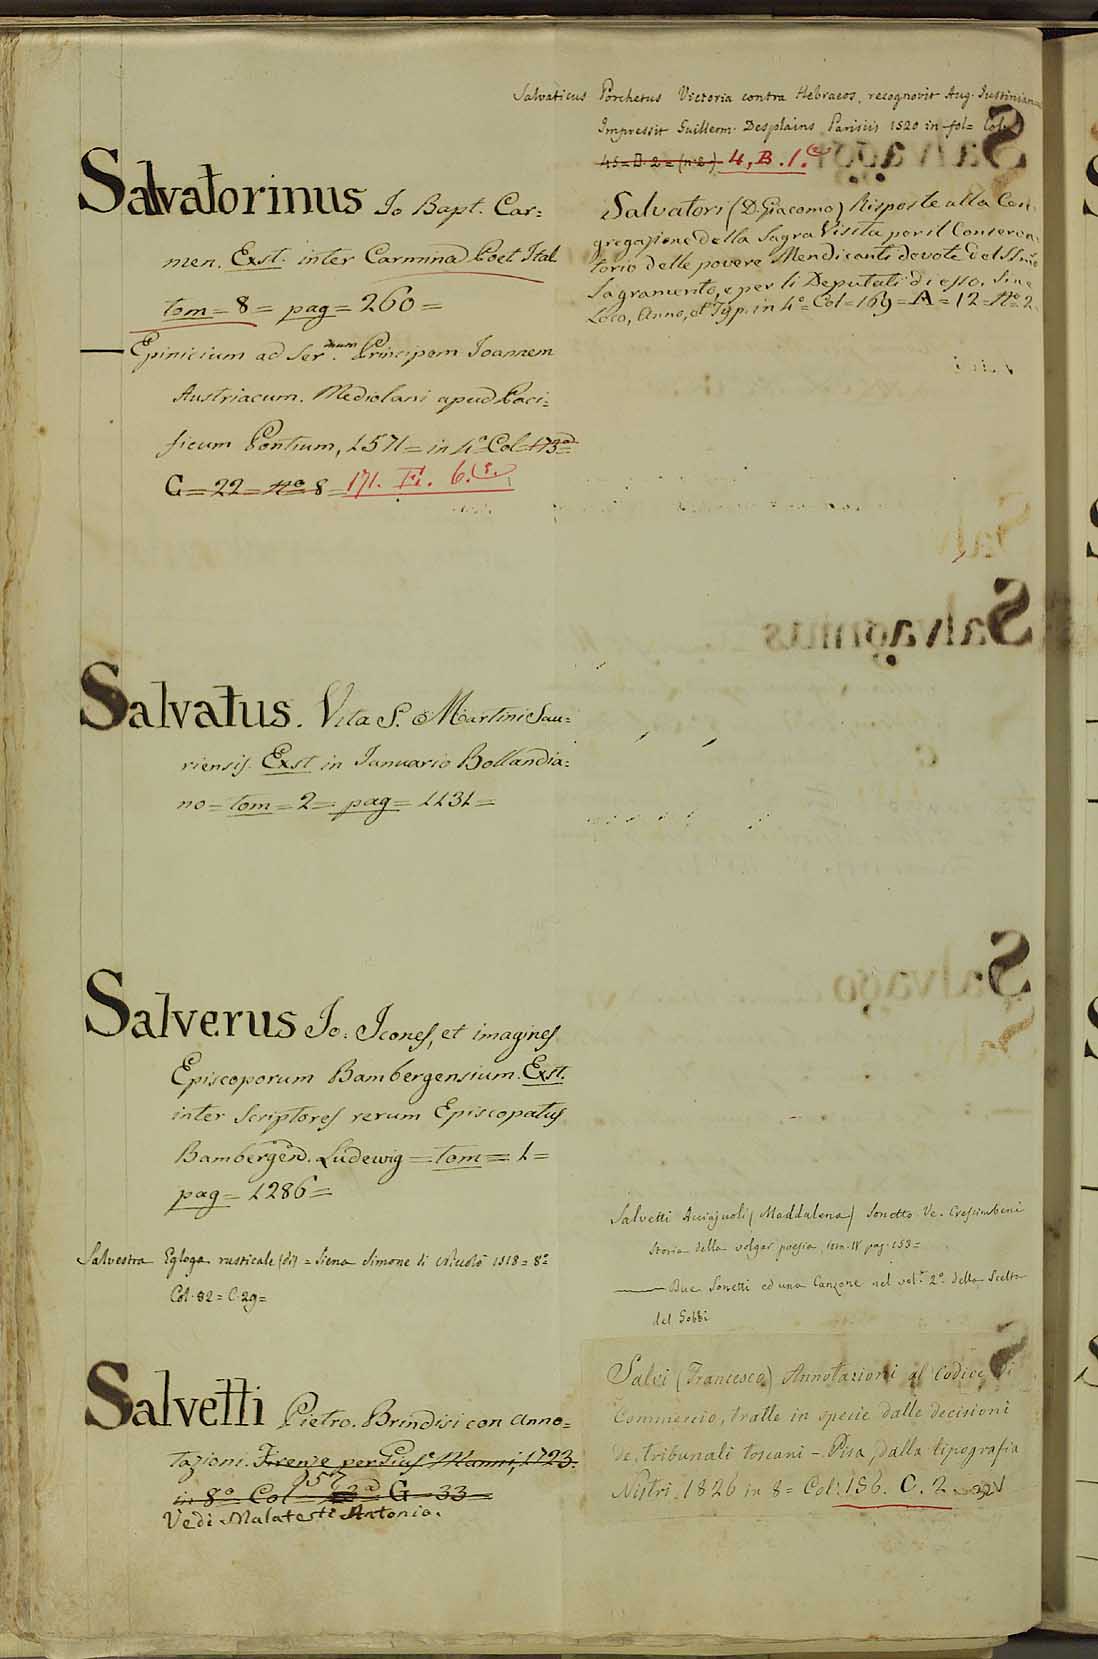 Salvatorinus Jo Bapt. Car=
men. Exst. inter Carmina Poet Ital
tom = 8 = pag = 260 =
— Epinicium ad Ser.mum Principem Joannem
Austriacum. Mediolani apud Paci=
ficum Pontium, 1571 = in 4.º Col 173ª =
G = 22 = Nº 8 = 171. F. 6.
Salvatus. Vita S. Martini Sau=
riensis. Exst in Januario Bollandia=
no = tom = 2 = pag = 1131 =
Salverus Jo: Icones, et imagines
Episcoporum Bambergensium. Exst.
inter Scriptores rerum Episcopatus
Bambergen. Ludewig = tom = 1 =
pag = 1286 =
Salvestra Egloga rusticale (di) = Siena Simone di Niccolò 1518 = 8º
Col. 82 = C. 29 =
Salvetti Pietro. Brindisi con anno=
tazioni. Firenze per Gius.e Manni, 1723.
in 8º Col 157 G = 33 =
Vedi Malatesti Antonio.
Salvaticus Porchetus Victoria contra Hebraeos, recognovit Aug. Justinianus
Impressit Guillerm. Desplains Parisiis 1520 in fol = Col
45 = D. 2 = (n. 2.) 4, B. 1.
Salvatori (D. Giacomo) Risposte alla Con=
gregazione della Sagra Visita per il Conserva=
torio delle povere Mendicanti devote del SSmo
Sagramento, e per li Deputati di esso. Sine
Loco, Anno, et Typ. in 4º = Col = 169 = A = 12 = Nº 2.
Salvetti Acciajuoli (Maddalena) Sonetto Ve. Crescimbeni
Storia della volgar poesia, tom. IV pag. 153 =
— Due Sonetti ed una Canzone nel vol.e 2º della Scelta
del Gobbi
Salvi (Francesco) Annotazioni al Codice di
Commercio, tratte in specie dalle decisioni
de, tribunali toscani – Pisa, dalla tipografia
Nistri. 1826 in 8 = Col. 156. C. 2